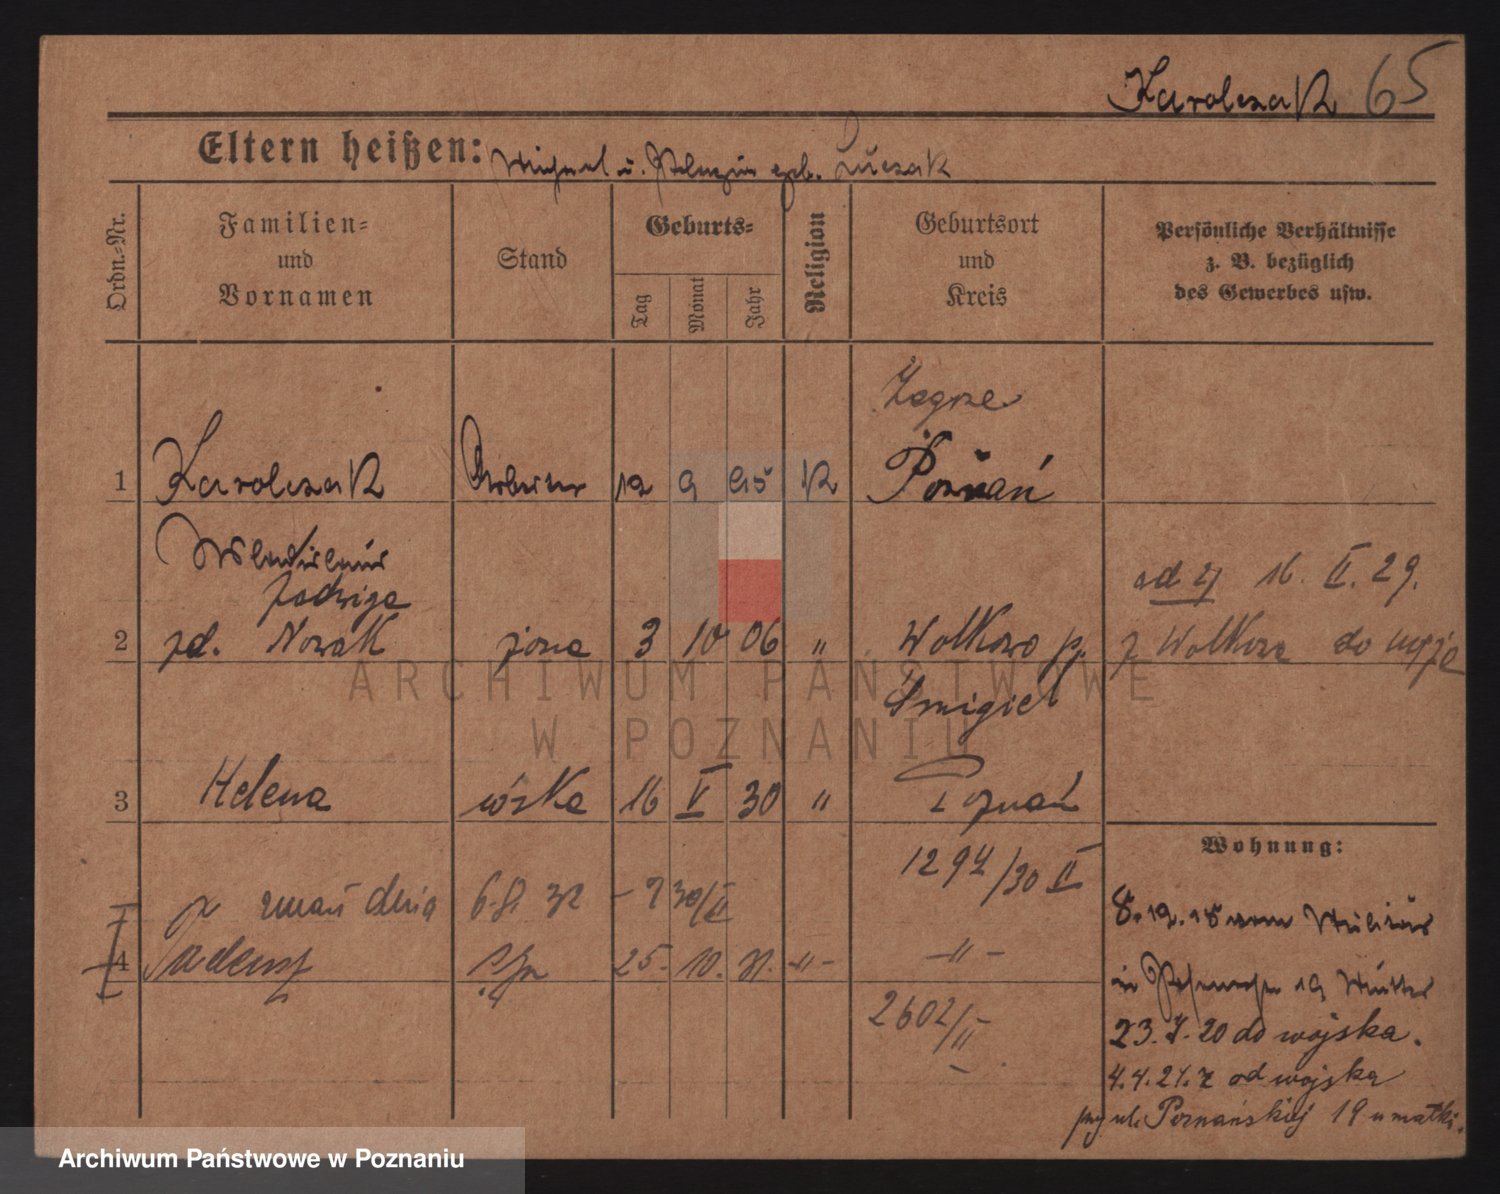 Karolczak 65
Eltern heißen: Michael u. Pelagia geb. Łuczak
Ordn.-Nr.
Familien-
und
Vornamen
Stand
Geburts-
Tag
Monat
Jahr
Religion
Geburtsort
und
Kreis
Persönliche Verhältnisse
z. B. bezüglich
des Gewerbes usw.
Żegrze
1 Karolczak Arbeiter 12 9 95 K Poznań
Wladislaus
Jadwiga
od 16. II. 29.
2 zd. Nowak żona 3 10 06 " Wolkowo p.
z Wolkowa do
Śmigiel
3 Helena córka 16 V 30 " Poznań
Wohnung:
1294/30 II
z dnia 30/II
4 Tadeusz syn 25. 10. 31. -"- -"-
2602/II
8.12.18 vom Militär
in 19 Mutter
23.7.20 do wojska.
4.4.21. z od wojska
przy ul. Poznańskiej 19 u matki.
ARCHIWUM PAŃSTWOWE
W POZNANIU
Archiwum Państwowe w Poznaniu